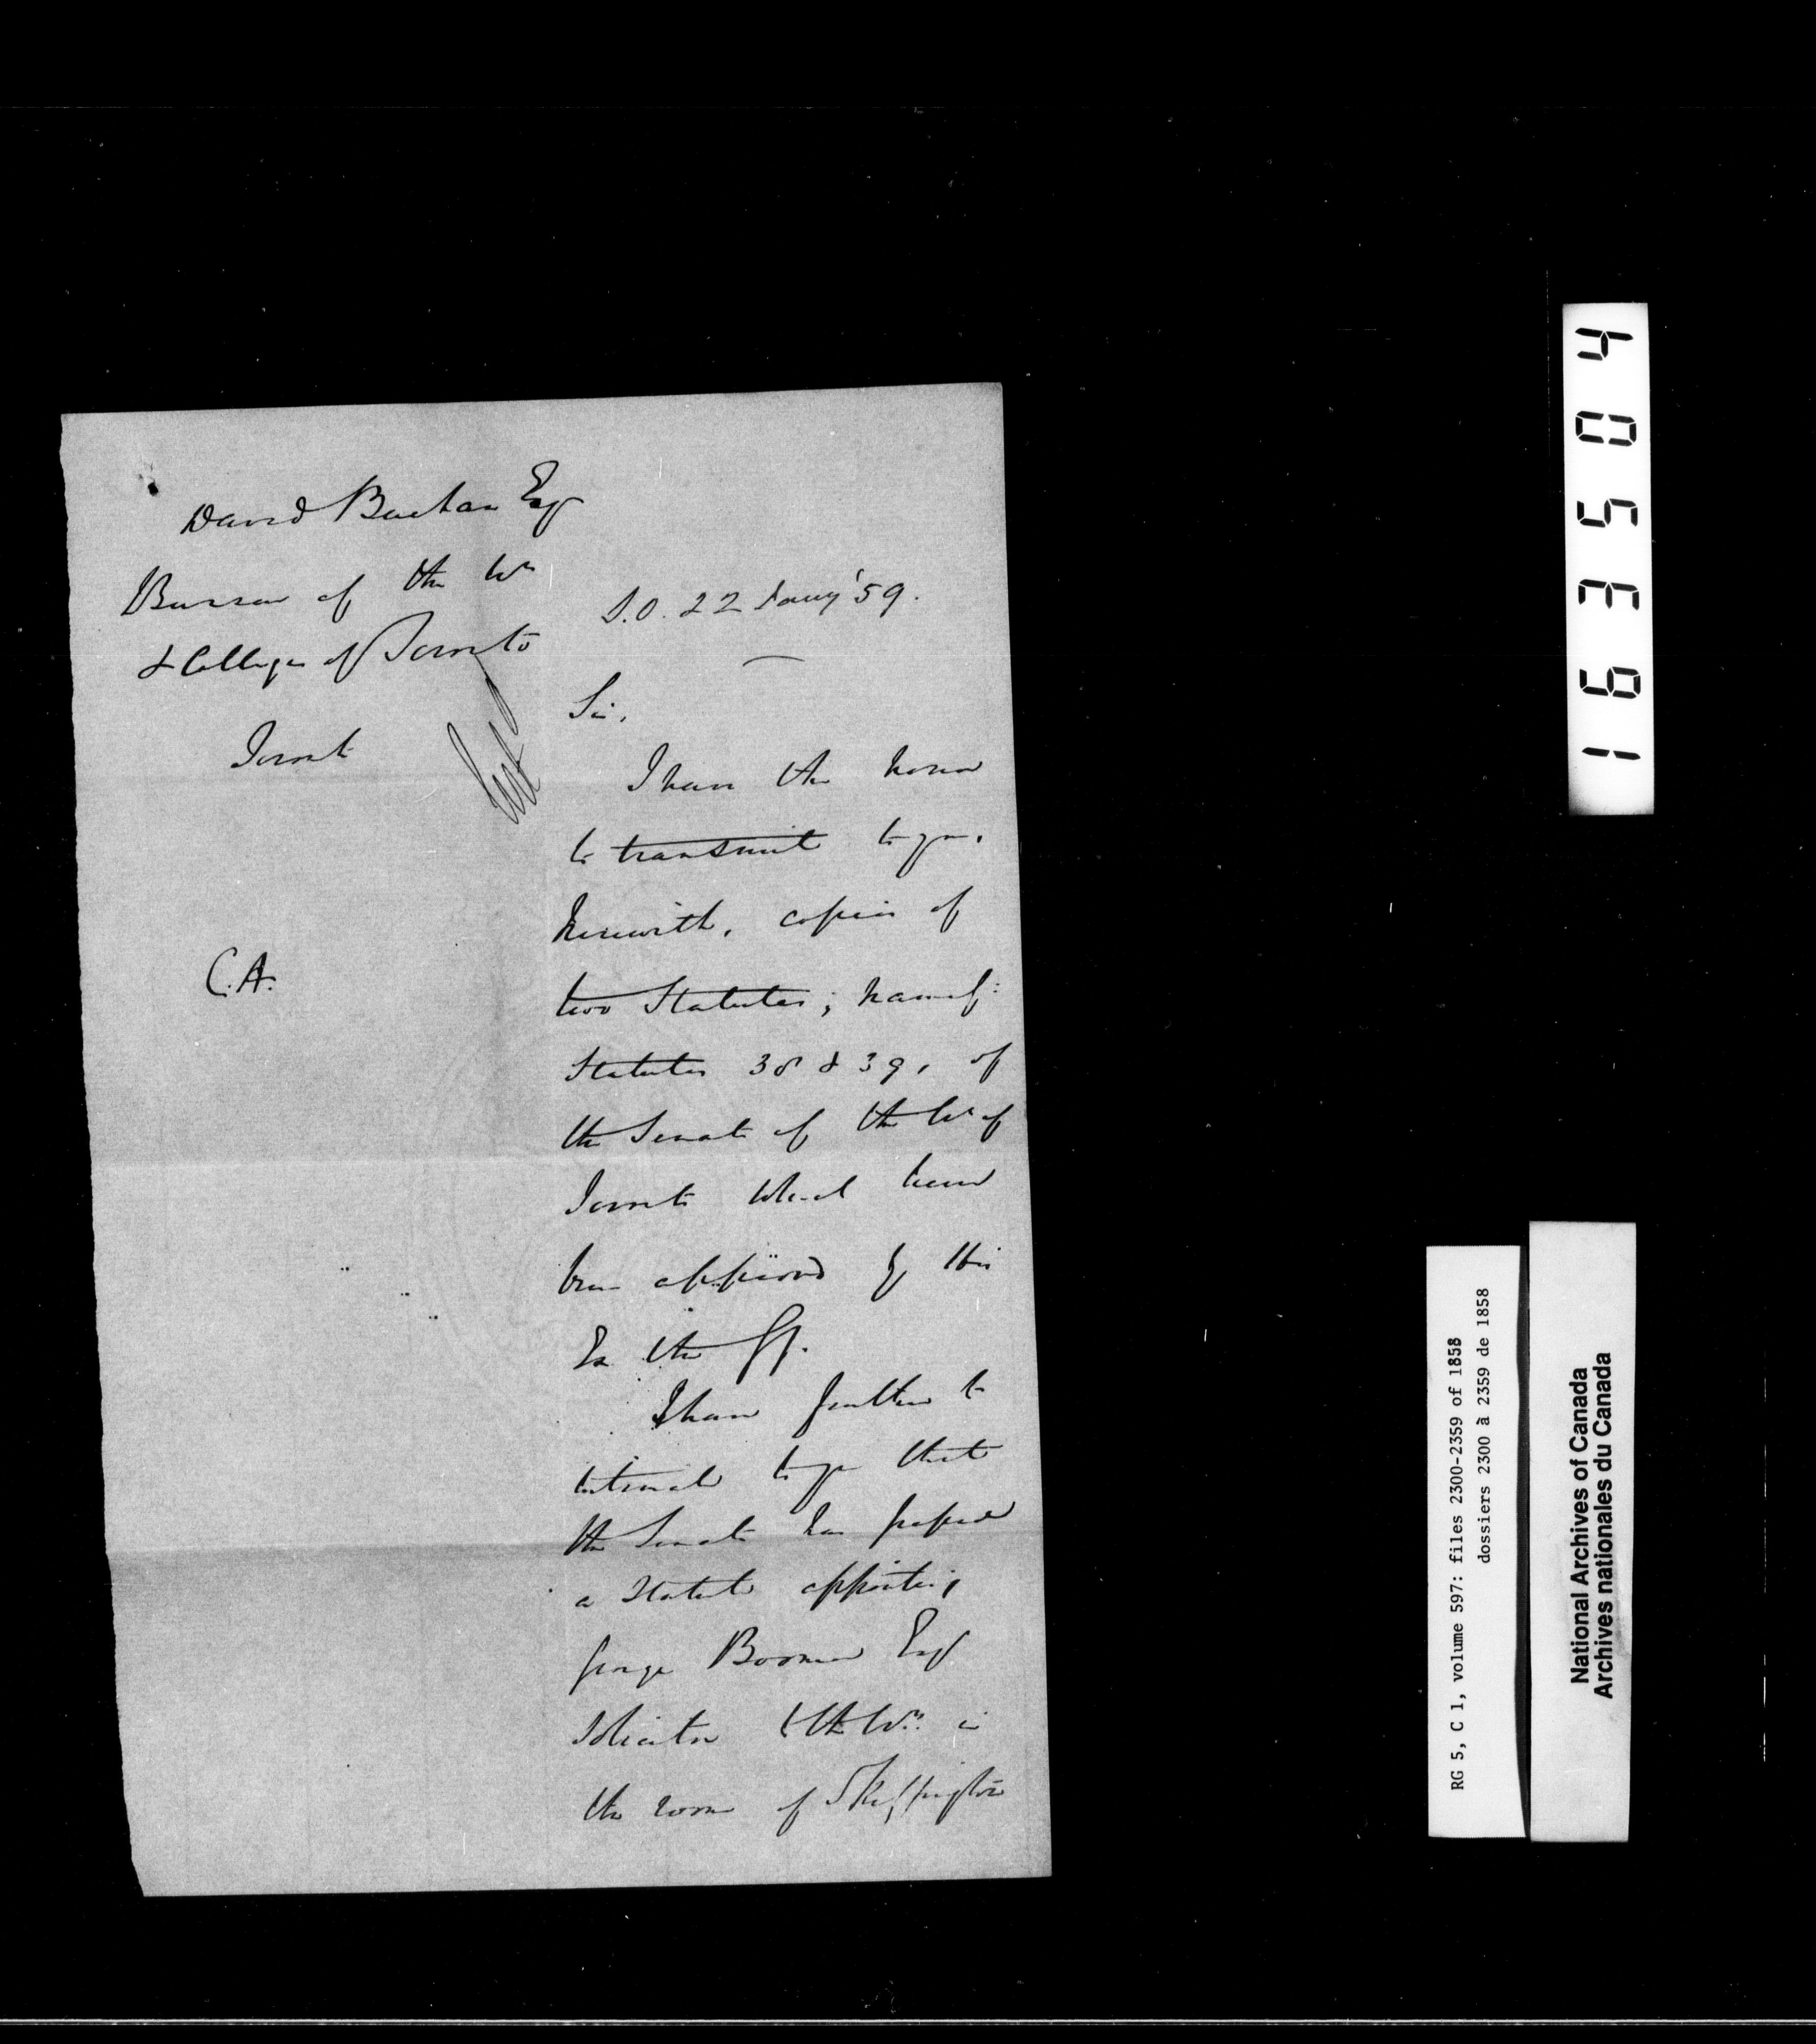 David Buchan Esq
Bursar of the Uny
& Colleges of Toronto
Toronto
C.A.
S.O. 22 Jany '59.
Sir,
I have the honor
to transmit to you,
herewith, copies of
two Statutes; namely:
Statutes 38 & 39, of
the Senate of the Uy of
Toronto which have
been approved by His
Ex. the GG.
I have further to
intimate to you that
the Senate has passed
a Statute appointing
George Boomer Esq
Solicitor to the Uny in
the room of Skeffington
163504
RG 5, C 1, volume 597: files 2300-2359 of 1858
dossiers 2300 à 2359 de 1858
National Archives of Canada
Archives nationales du Canada